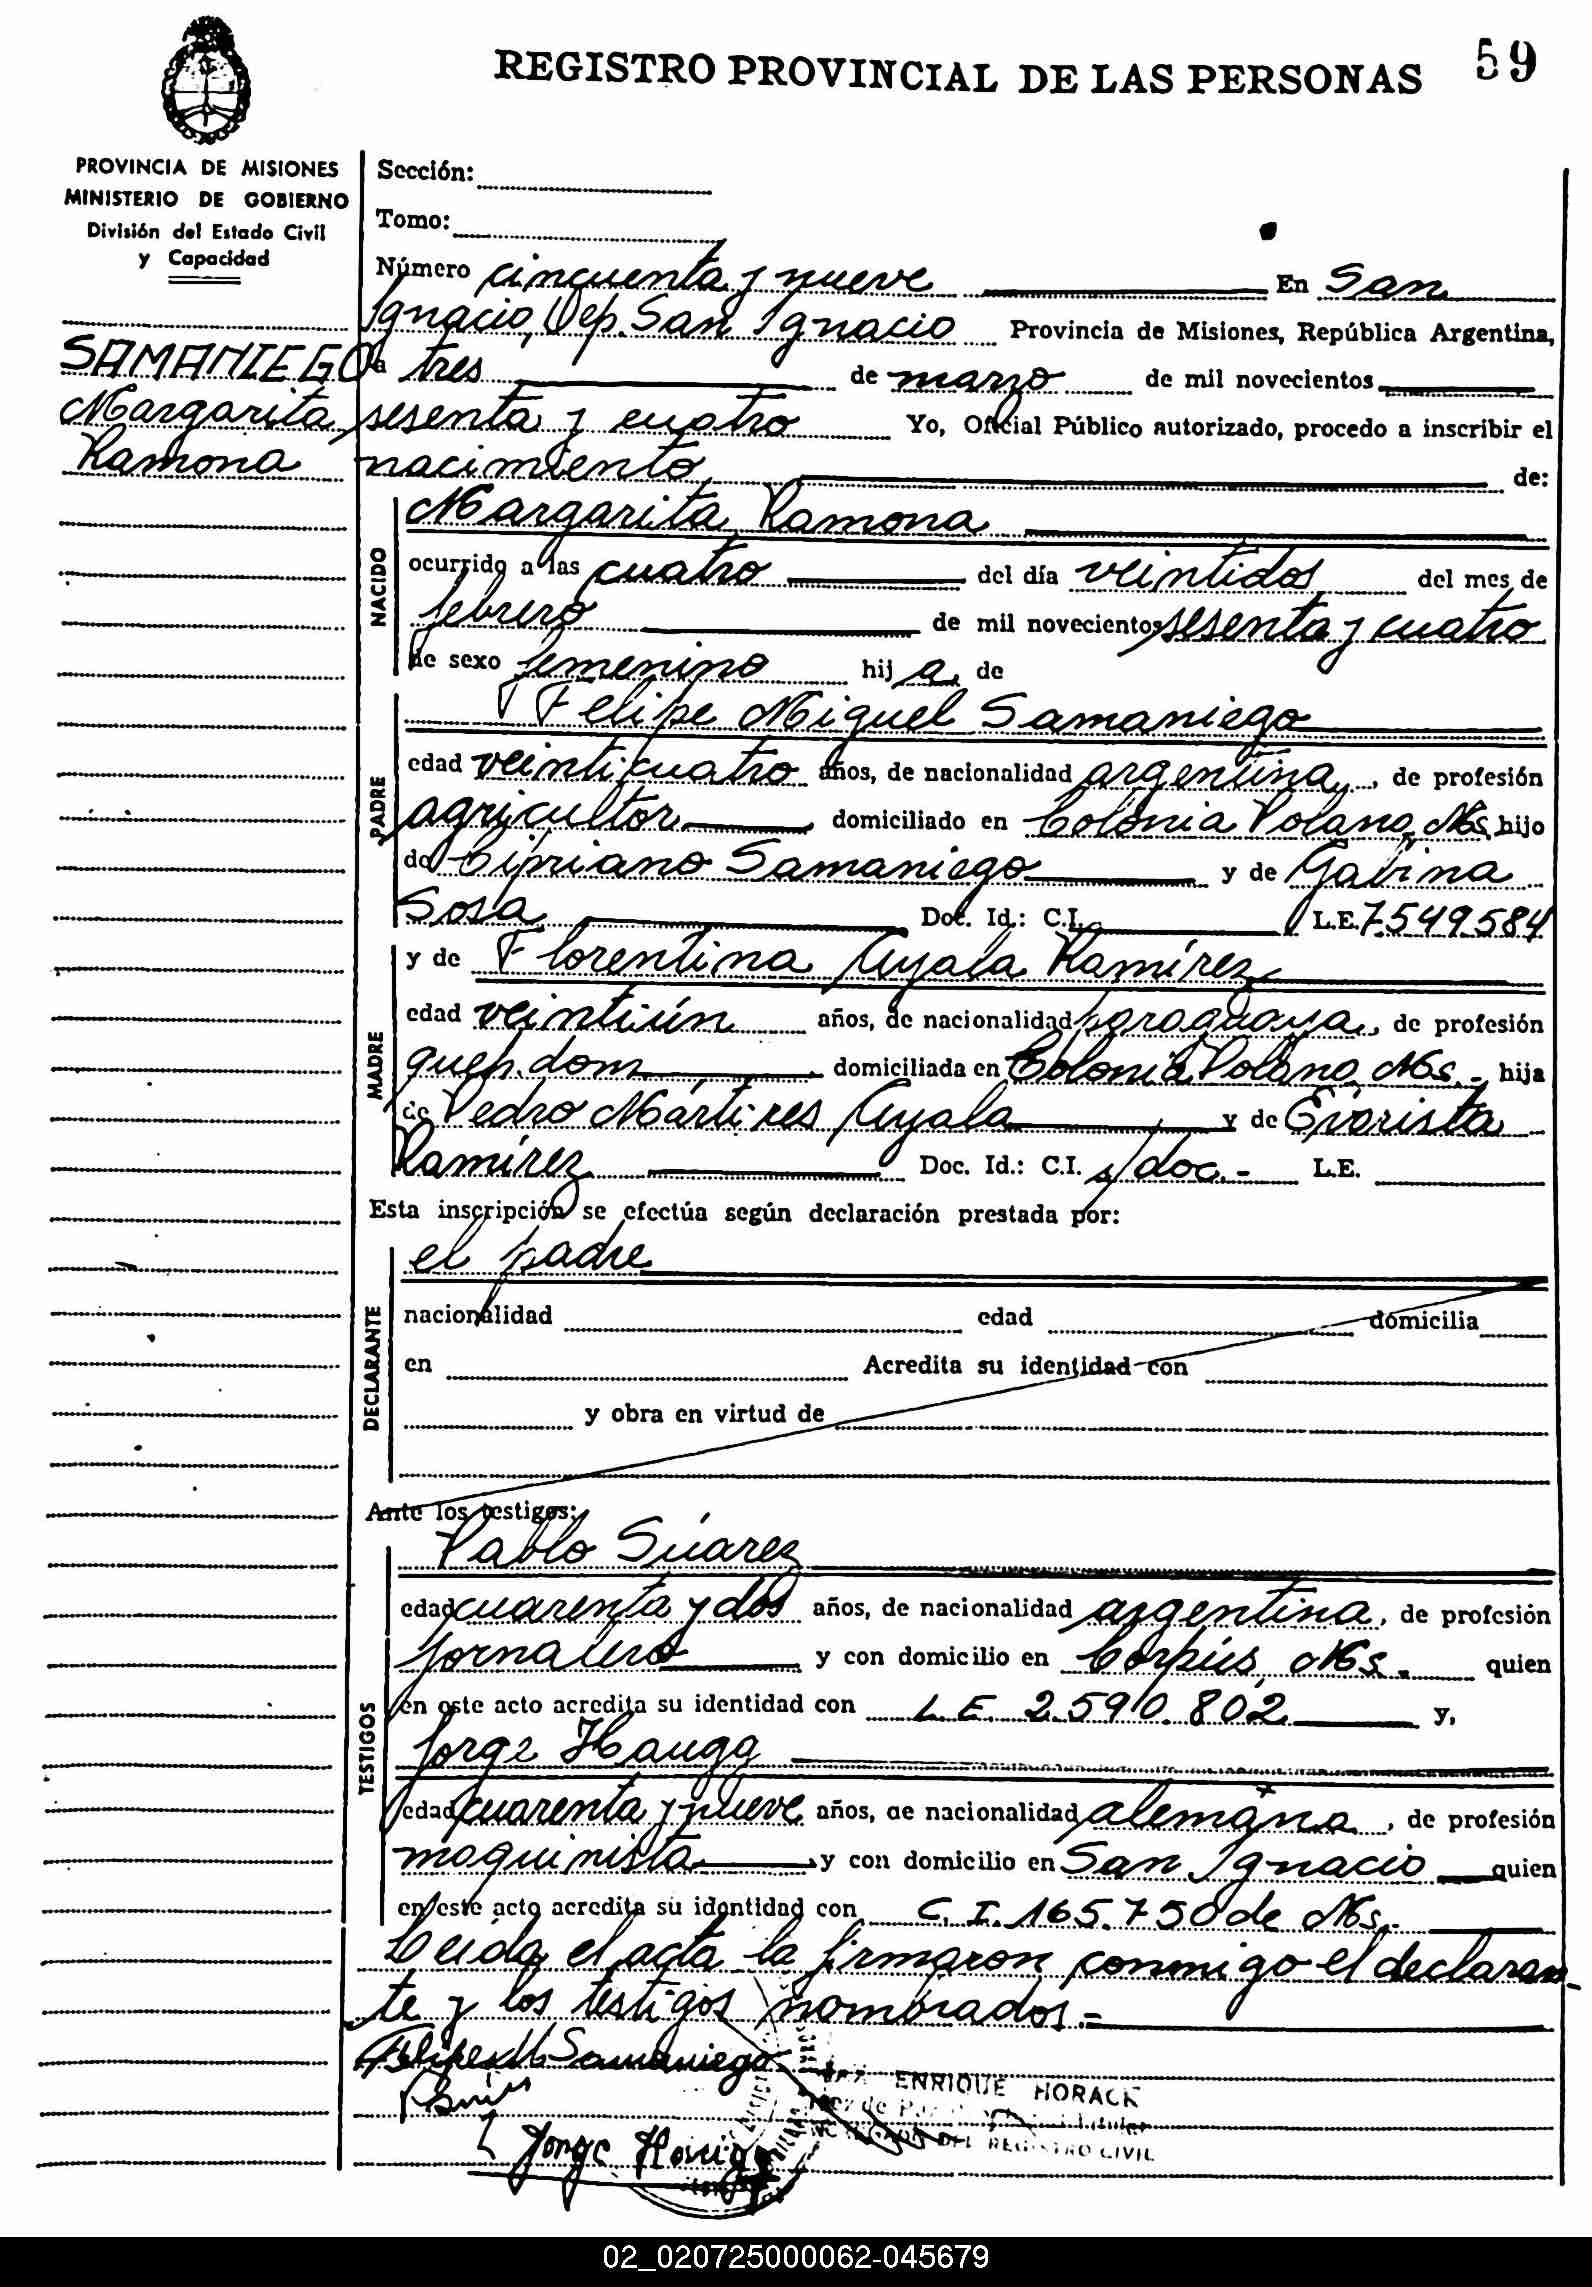 REGISTRO PROVINCIAL DE LAS PERSONAS 59
PROVINCIA DE MISIONES
MINISTERIO DE GOBIERNO
División del Estado Civil
y Capacidad
SAMANIEGO
Margarita
Ramona
Sección:
Tomo:
Número cincuenta y nueve En San
Ignacio, Dep. San Ignacio Provincia de Misiones, República Argentina,
a tres de marzo de mil novecientos
sesenta y cuatro Yo, Oficial Público autorizado, procedo a inscribir el
nacimiento de:
NACIDO
Margarita Ramona
ocurrido a las cuatro del día veintidos del mes de
febrero de mil novecientos sesenta y cuatro
de sexo femenino hij a de
PADRE
Felipe Miguel Samaniego
edad veinticuatro años, de nacionalidad argentina, de profesión
agricultor domiciliado en Colonia Polana Ms. hijo
de Cipriano Samaniego y de Gabina
Sosa Doc. Id.: C.I. L.E. 7.549.584
MADRE
y de Florentina Ayala Ramírez
edad veintiún años, de nacionalidad paraguaya, de profesión
queh. dom. domiciliada en Colonia Polana Ms.- hija
de Pedro Mártires Ayala y de Evarista
Ramírez Doc. Id.: C.I. s/doc.- L.E.
Esta inscripción se efectúa según declaración prestada por:
DECLARANTE
el padre
nacionalidad edad domicilia
en Acredita su identidad con
y obra en virtud de
Ante los testigos:
TESTIGOS
Pablo Súarez
edad cuarenta y dos años, de nacionalidad argentina, de profesión
jornalero y con domicilio en Corpus, Ms.- quien
en este acto acredita su identidad con L.E. 2.590.802 y,
Jorge Haugg
edad cuarenta y nueve años, de nacionalidad alemana, de profesión
maquinista y con domicilio en San Ignacio quien
en este acto acredita su identidad con C.I. 165.750 de Ms.-
Leída el acta la firmaron conmigo el declaran-
te y los testigos nombrados.-
Felipe M Samaniego
ENRIQUE HORACK
Juez de Paz Titular
ENCARGADO DEL REGISTRO CIVIL
Jorge Haugg
02_020725000062-045679